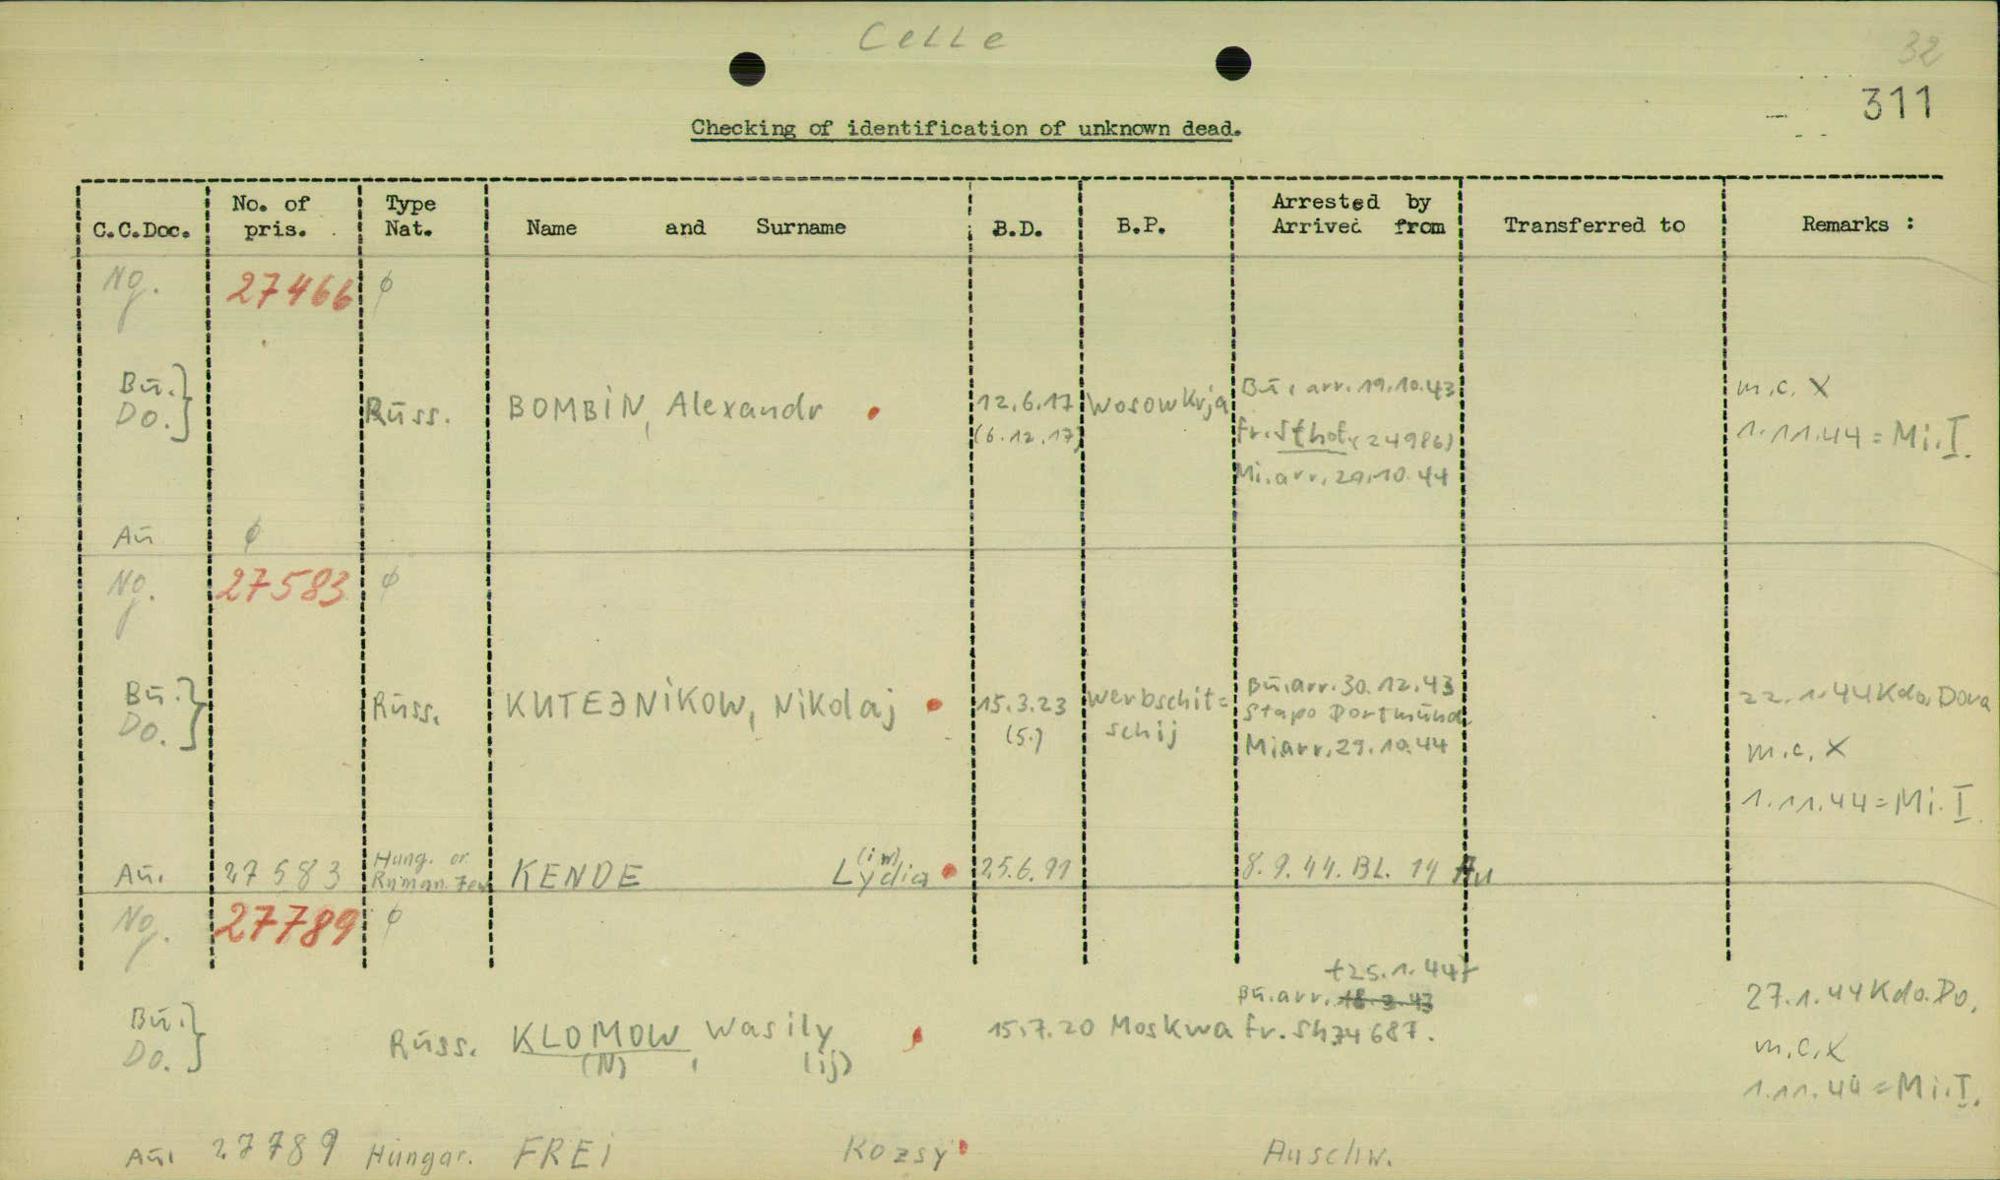 Celle
32
311
Checking of identification of unknown dead.
C.C.Doc. No. of pris. Type Nat. Name and Surname B.D. B.P. Arrested by Arrived from Transferred to Remarks :
Ng. 27466 ϕ
Bū. Do. } Rūss. BOMBiN, Alexandr 12.6.17 (6.12.17) Wosowkrja Bū. arr. 19.10.43 fr. Sthof. (24986) Mi. arr. 29.10.44 m.c. X 1.11.44 = Mi. I.
Aū ϕ
Ng. 27583 ϕ
Bū. Do. } Rūss. KUTEƏNiKOW, Nikolaj 15.3.23 (5.) Werbschit= schij Bū. arr. 30.12.43 Stapo Dortmūnd Mi arr. 29.10.44 22.1.44 Kdo. Dora m.c. X 1.11.44 = Mi. I.
Aū. 27583 Hung. or Ruman. Jew KENDE Lydia (im) 25.6.91 8.9.44. BL. 14 Au
Ng. 27789 ϕ
Bū. Do. } Rūss. KLOMOW (N), Wasily (ij) 15.7.20 Moskwa Bū. arr. 18.3.43 +25.1.44+ fr. Sh34687. 27.1.44 Kdo. Do. m.c. X 1.11.44 = Mi. I.
Aū. 27789 Hūngar. FREi Kozsy Auschw.